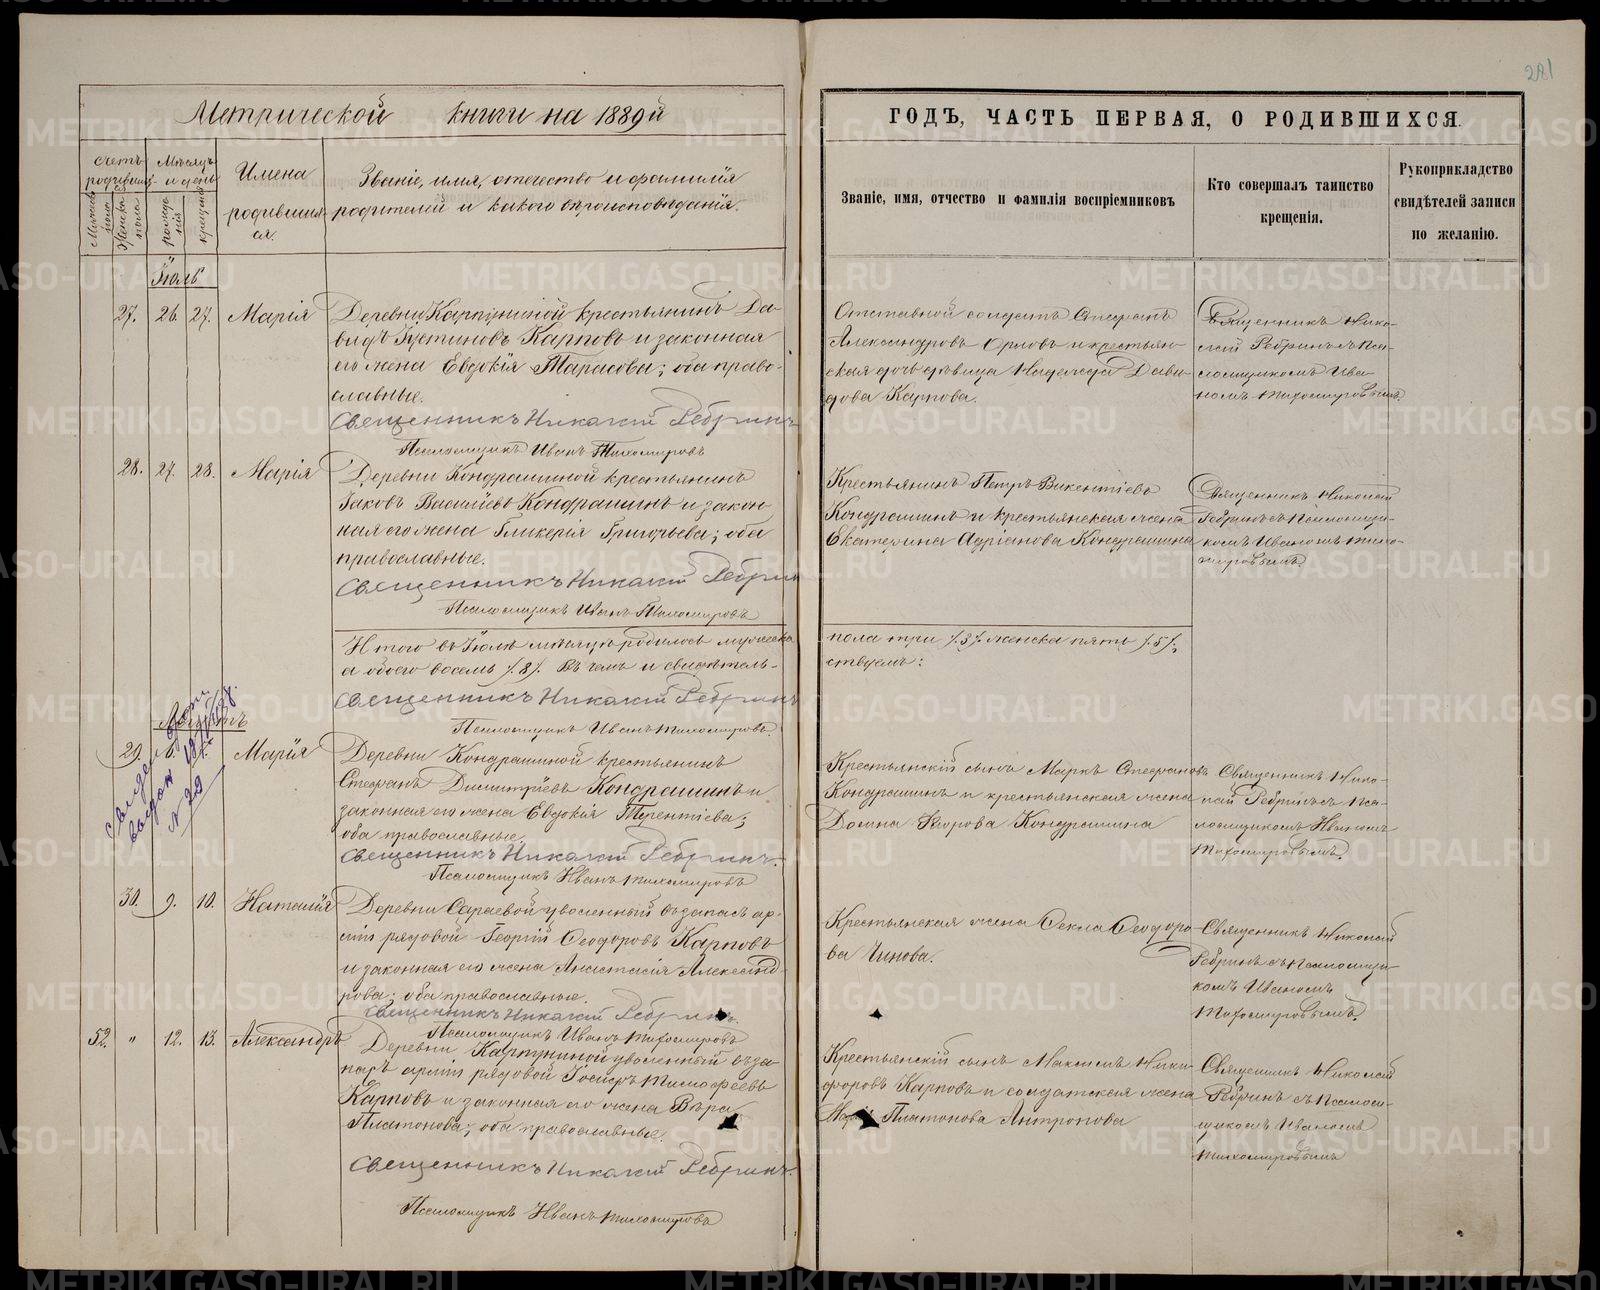 281
Метрической книги на 1889й
ГОДЪ, ЧАСТЬ ПЕРВАЯ, О РОДИВШИХСЯ.
Счетъ родившихся
Мужеска пола
Женска пола
Мѣсяцъ и день
рожденія
крещенія
Имена родившихся.
Званіе, имя, отечество и фамилія
родителей и какого вѣроисповѣданія.
Званіе, имя, отчество и фамилія воспріемниковъ
Кто совершалъ таинство
крещенія.
Рукоприкладство
свидѣтелей записи
по желанію.
Іюль
27. 26. 27. Марія
Деревни Карпушиной крестьянинъ Да-
видъ Іустиновъ Карповъ и законная
его жена Евдокія Тарасова; оба право-
славные.
Священникъ Николай Ребринъ
Псаломщикъ Иванъ Тихомировъ
Отставной солдатъ Стефанъ
Александровъ Орловъ и крестьян-
ская дочь дѣвица Надежда Дави-
дова Карпова.
Священникъ Нико-
лай Ребринъ съ Пса-
ломщикомъ Ива-
номъ Тихомировымъ
28. 27. 28. Марія
Деревни Кондрашиной крестьянинъ
Іаковъ Васильевъ Кондрашинъ и закон-
ная его жена Гликерія Григорьева; оба
православные.
Священникъ Николай Ребринъ
Псаломщикъ Иванъ Тихомировъ
Крестьянинъ Петръ Викентіевъ
Кондрашинъ и крестьянская жена
Екатерина Адріанова Кондрашина
Священникъ Николай
Ребринъ съ Псаломщи-
комъ Иваномъ Тихо-
мировымъ
Итого въ Іюлѣ мѣсяцѣ родилось мужеска
пола три /3/. женска пять /5/.
а обоего восемь /8/. Въ чемъ и свидѣтель-
ствуемъ:
Священникъ Николай Ребринъ
Псаломщикъ Иванъ Тихомировъ
Августъ
29. 6. Марія
Деревни Кондрашиной крестьянинъ
Стефанъ Димитріевъ Кондрашинъ и
законная его жена Евдокія Терентіева;
оба православные.
Священникъ Николай Ребринъ.
Псаломщикъ Иванъ Тихомировъ
Крестьянскій сынъ Маркъ Стефановъ
Кондрашинъ и крестьянская жена
Домна Егорова Кондрашина
Священникъ Нико-
лай Ребринъ съ Пса-
ломщикомъ Иваномъ
Тихомировымъ.
№ 29
30. 9. 10. Наталія
Деревни Сараевой уволенный въ запасъ ар-
міи рядовой Георгій Ѳеодоровъ Карповъ
и законная его жена Анастасія Александ-
рова; оба православные.
Священникъ Николай Ребринъ.
Псаломщикъ Иванъ Тихомировъ
Крестьянская жена Ѳекла Ѳеодоро-
ва Чинова.
Священникъ Николай
Ребринъ съ Псаломщи-
комъ Иваномъ
Тихомировымъ.
52. " 12. 13. Александръ
Деревни Карпушиной уволенный въ за-
пасъ арміи рядовой Іосифъ Тимофеевъ
Карповъ и законная его жена Вѣра
Платонова; оба православные.
Священникъ Николай Ребринъ.
Псаломщикъ Иванъ Тихомировъ
Крестьянскій сынъ Максимъ Ники-
форовъ Карповъ и солдатская жена
Платонова Антропова
Священникъ Николай
Ребринъ съ Псалом-
щикомъ Иваномъ
Тихомировымъ
METRIKI.GASO-URAL.RU